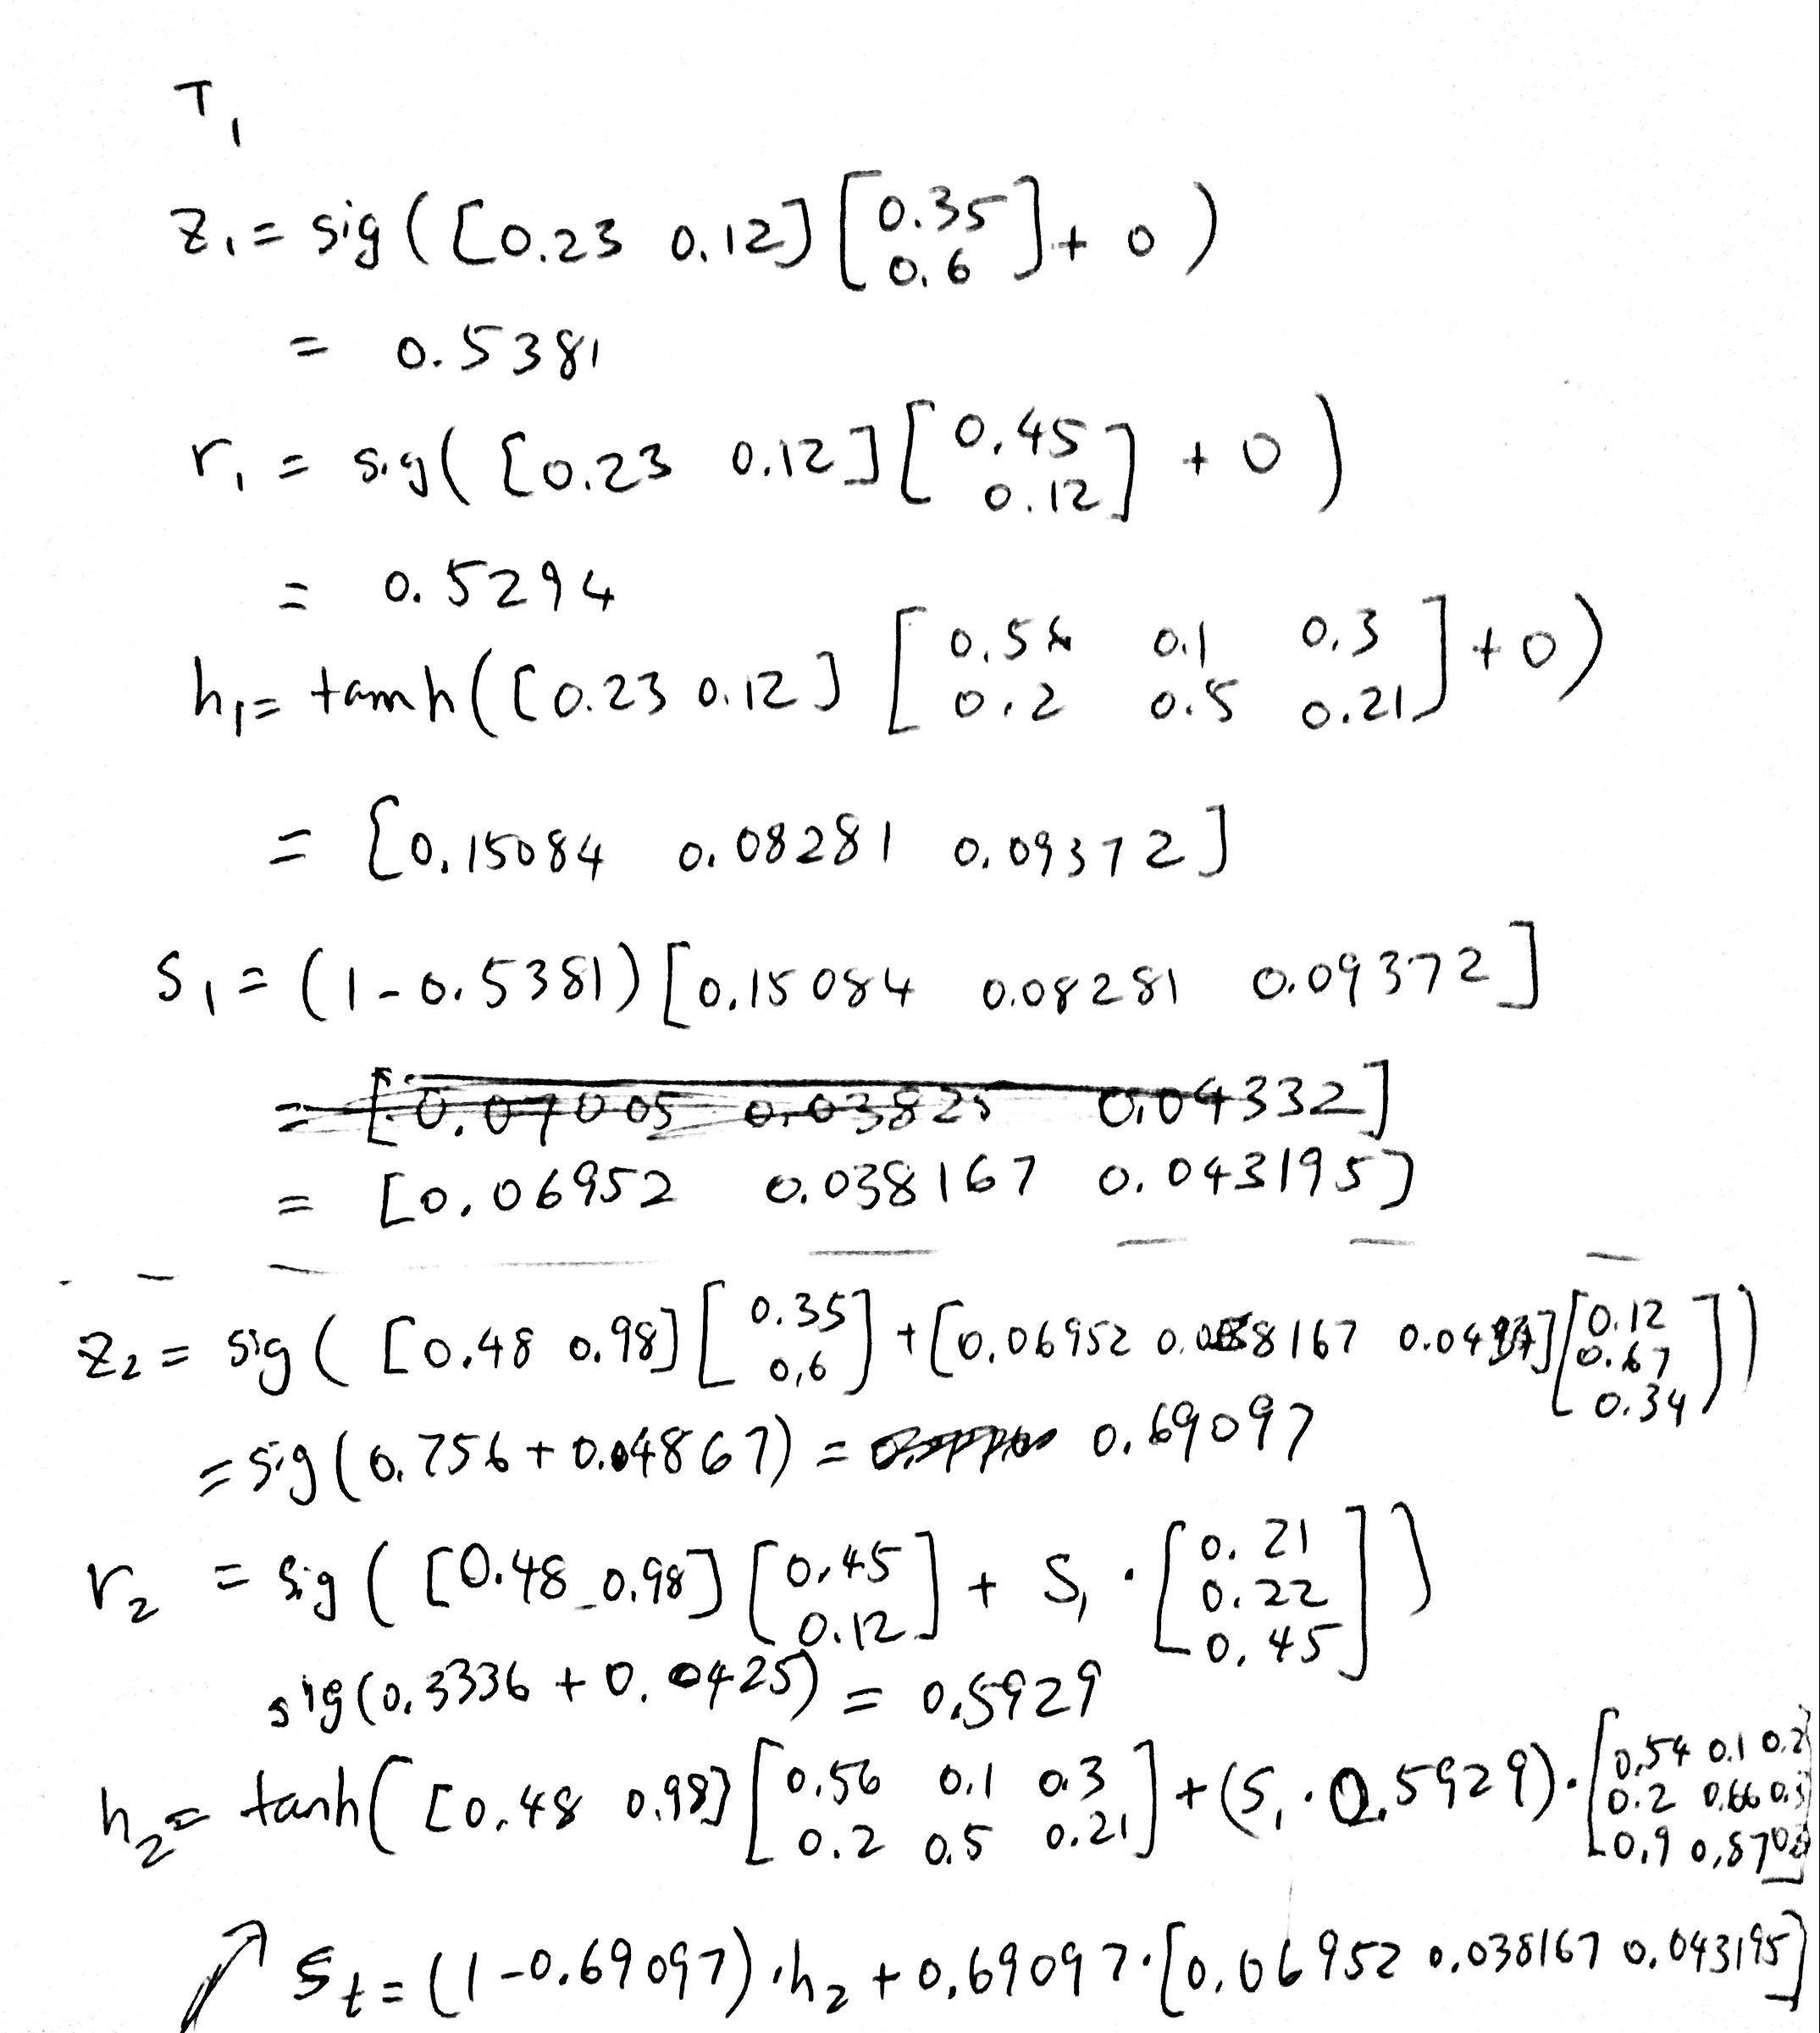 T₁
z₁ = sig ( [0.23 0.12] [0.35 0.6] + 0 )
= 0.5381
r₁ = sig( [0.23 0.12] [0.45 0.12] + 0 )
= 0.5294
h₁ = tanh ( [0.23 0.12] [ 0.1 0.3 0.2 0.5 0.21] + 0 )
= [0.15084 0.08281 0.09372]
s₁ = (1-0.5381) [0.15084 0.08281 0.09372]
= [0.07005 0.03825 0.04332]
= [0.06952 0.038167 0.043195]
z₂ = sig ( [0.48 0.98] [0.35 0.6] + [0.06952 0.038167 ] [0.12 0.67 0.34] )
= sig (0.756 + 0.04867) = 0.69097
r₂ = sig ( [0.48 0.98] [0.45 0.12] + S₁ · [0.21 0.22 0.45] )
sig (0.3336 + 0.0425) = 0.5929
h₂ = tanh ( [0.48 0.98] [0.56 0.1 0.3 0.2 0.5 0.21] + (S₁ · 0.5929) · [0.54 0.1 0.2 0.66 0.9 0.87
S_t = (1-0.69097) · h₂ + 0.69097 · [0.06952 0.038167 0.043195]